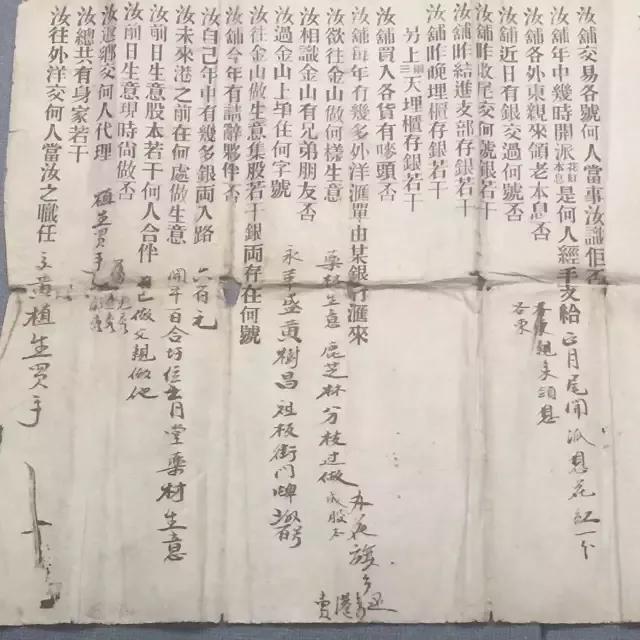 汝舖交易各號何人當事汝識佢否
汝舖年中幾時開派花紅本息是何人經手支給 正月尾開派息花紅一分
汝舖各外東親來領老本息否 親來領息
汝舖近日有銀交過何號否
汝舖昨收尾交何號銀若干
汝舖昨結進支部存銀若干
汝舖昨晚埋櫃存銀若干
另上兩三天埋櫃存銀若干
汝舖買入各貨有嘜頭否
汝舖每年有幾多外洋滙單由某銀行滙來
汝欲往金山做何樣生意 藥材生意 鹿芝林分枝过做
汝相識金山有兄弟朋友否
汝過金山上岸住何字號 永年盛黃樹昌祖板街門牌
汝往金山做生意集股若干銀両存在何號
汝舖今年有請辭夥伴否
汝自己年中有幾多銀両入路 六百元
汝未來港之前在何處做生意 開平百合圩堂藥材生意
汝前日生意股本若干何人合伴 自己做父親做他
汝前日生意現時尚做否
汝返鄉交何人代理 植生買手
汝總共有身家若干
汝往外洋交何人當汝之職任 交黃植生買手